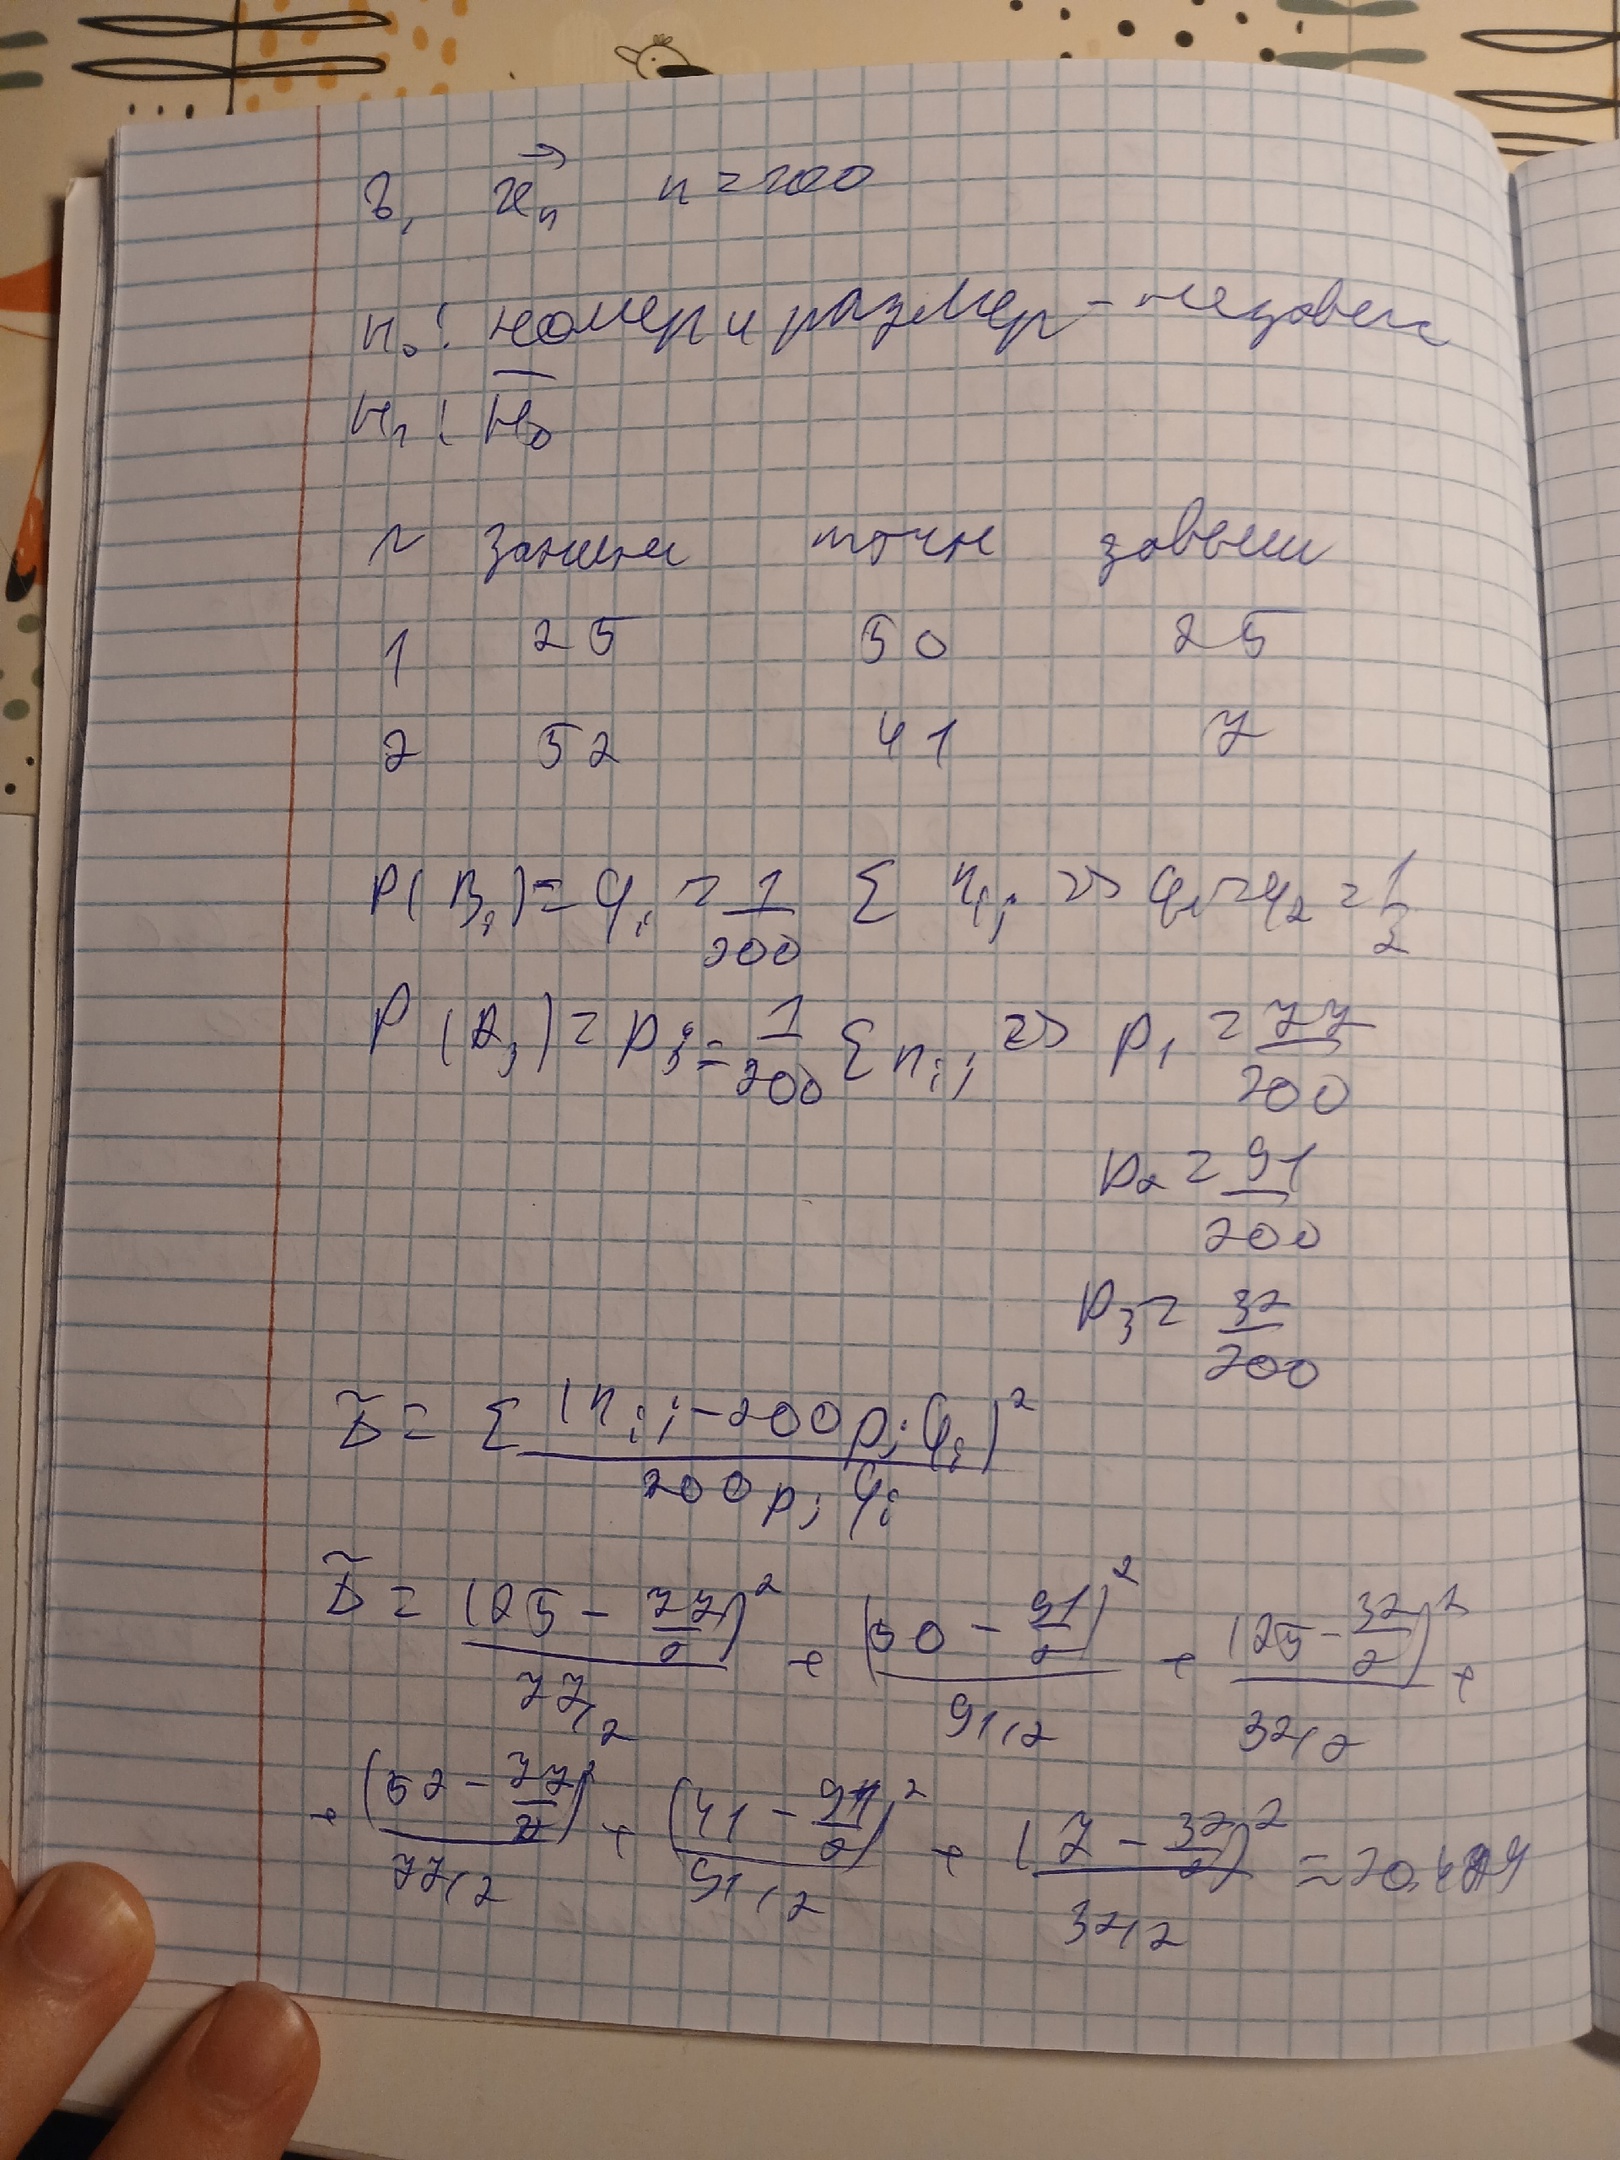 x⃗n n = 200
H₀: номер и размер - независ
H₁: H̅₀
N заниж точн завыш
1 25 50 25
2 52 41 7
P(Bᵢ) = qᵢ = 1/200 Σ nᵢⱼ => q₁ = q₂ = 1/2
P(Aⱼ) = pⱼ = 1/200 Σ nᵢⱼ => p₁ = 77/200
p₂ = 91/200
p₃ = 32/200
Δ̃ = Σ (nᵢⱼ - 200pⱼqᵢ)²/200pⱼqᵢ
Δ̃ = (25 - 77/2)²/77/2 + (50 - 91/2)²/91/2 + (25 - 32/2)²/32/2 +
+ (52 - 77/2)²/77/2 + (41 - 91/2)²/91/2 + (7 - 32/2)²/32/2 =